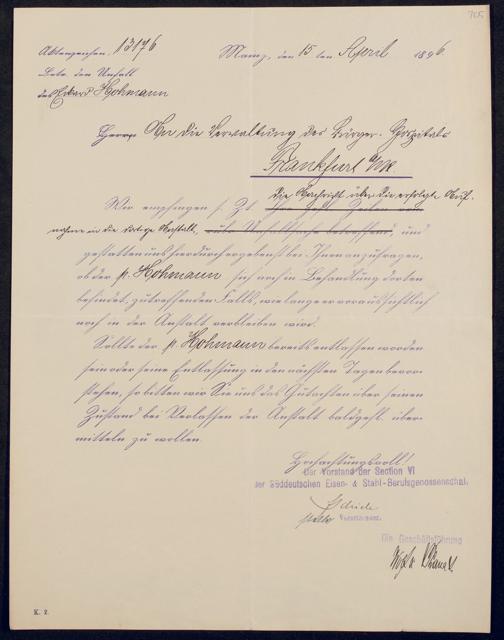 705
Aktenzeichen: 13176
Mainz, den 15 ten April 1896.
Betr. den Unfall
des Eduard Hohmann
Herrn An die Verwaltung des Bürger-Hospitals
Frankfurt a/M
die Nachricht über die erfolgte Auf-
Wir empfingen s. Zt. Ihre Zeilen vom
nahme in die dortige Anstalt, und
gestatten uns hierdurch ergebenst bei Ihnen anzufragen,
ob der p. Hohmann sich noch in Behandlung dorten
befindet, zutreffenden Falls, wie lange er voraussichtlich
noch in der Anstalt verbleiben wird.
Sollte der p. Hohmann bereits entlassen worden
sein oder seine Entlassung in den nächsten Tagen bevor-
stehen, so bitten wir Sie uns das Gutachten über seinen
Zustand bei Verlassen der Anstalt baldgefl. über-
mitteln zu wollen.
Hochachtungsvoll!
Der Vorstand der Section VI
der Süddeutschen Eisen- & Stahl-Berufsgenossenschaft.
Vorsitzender.
Die Geschäftsführung
K. 2.